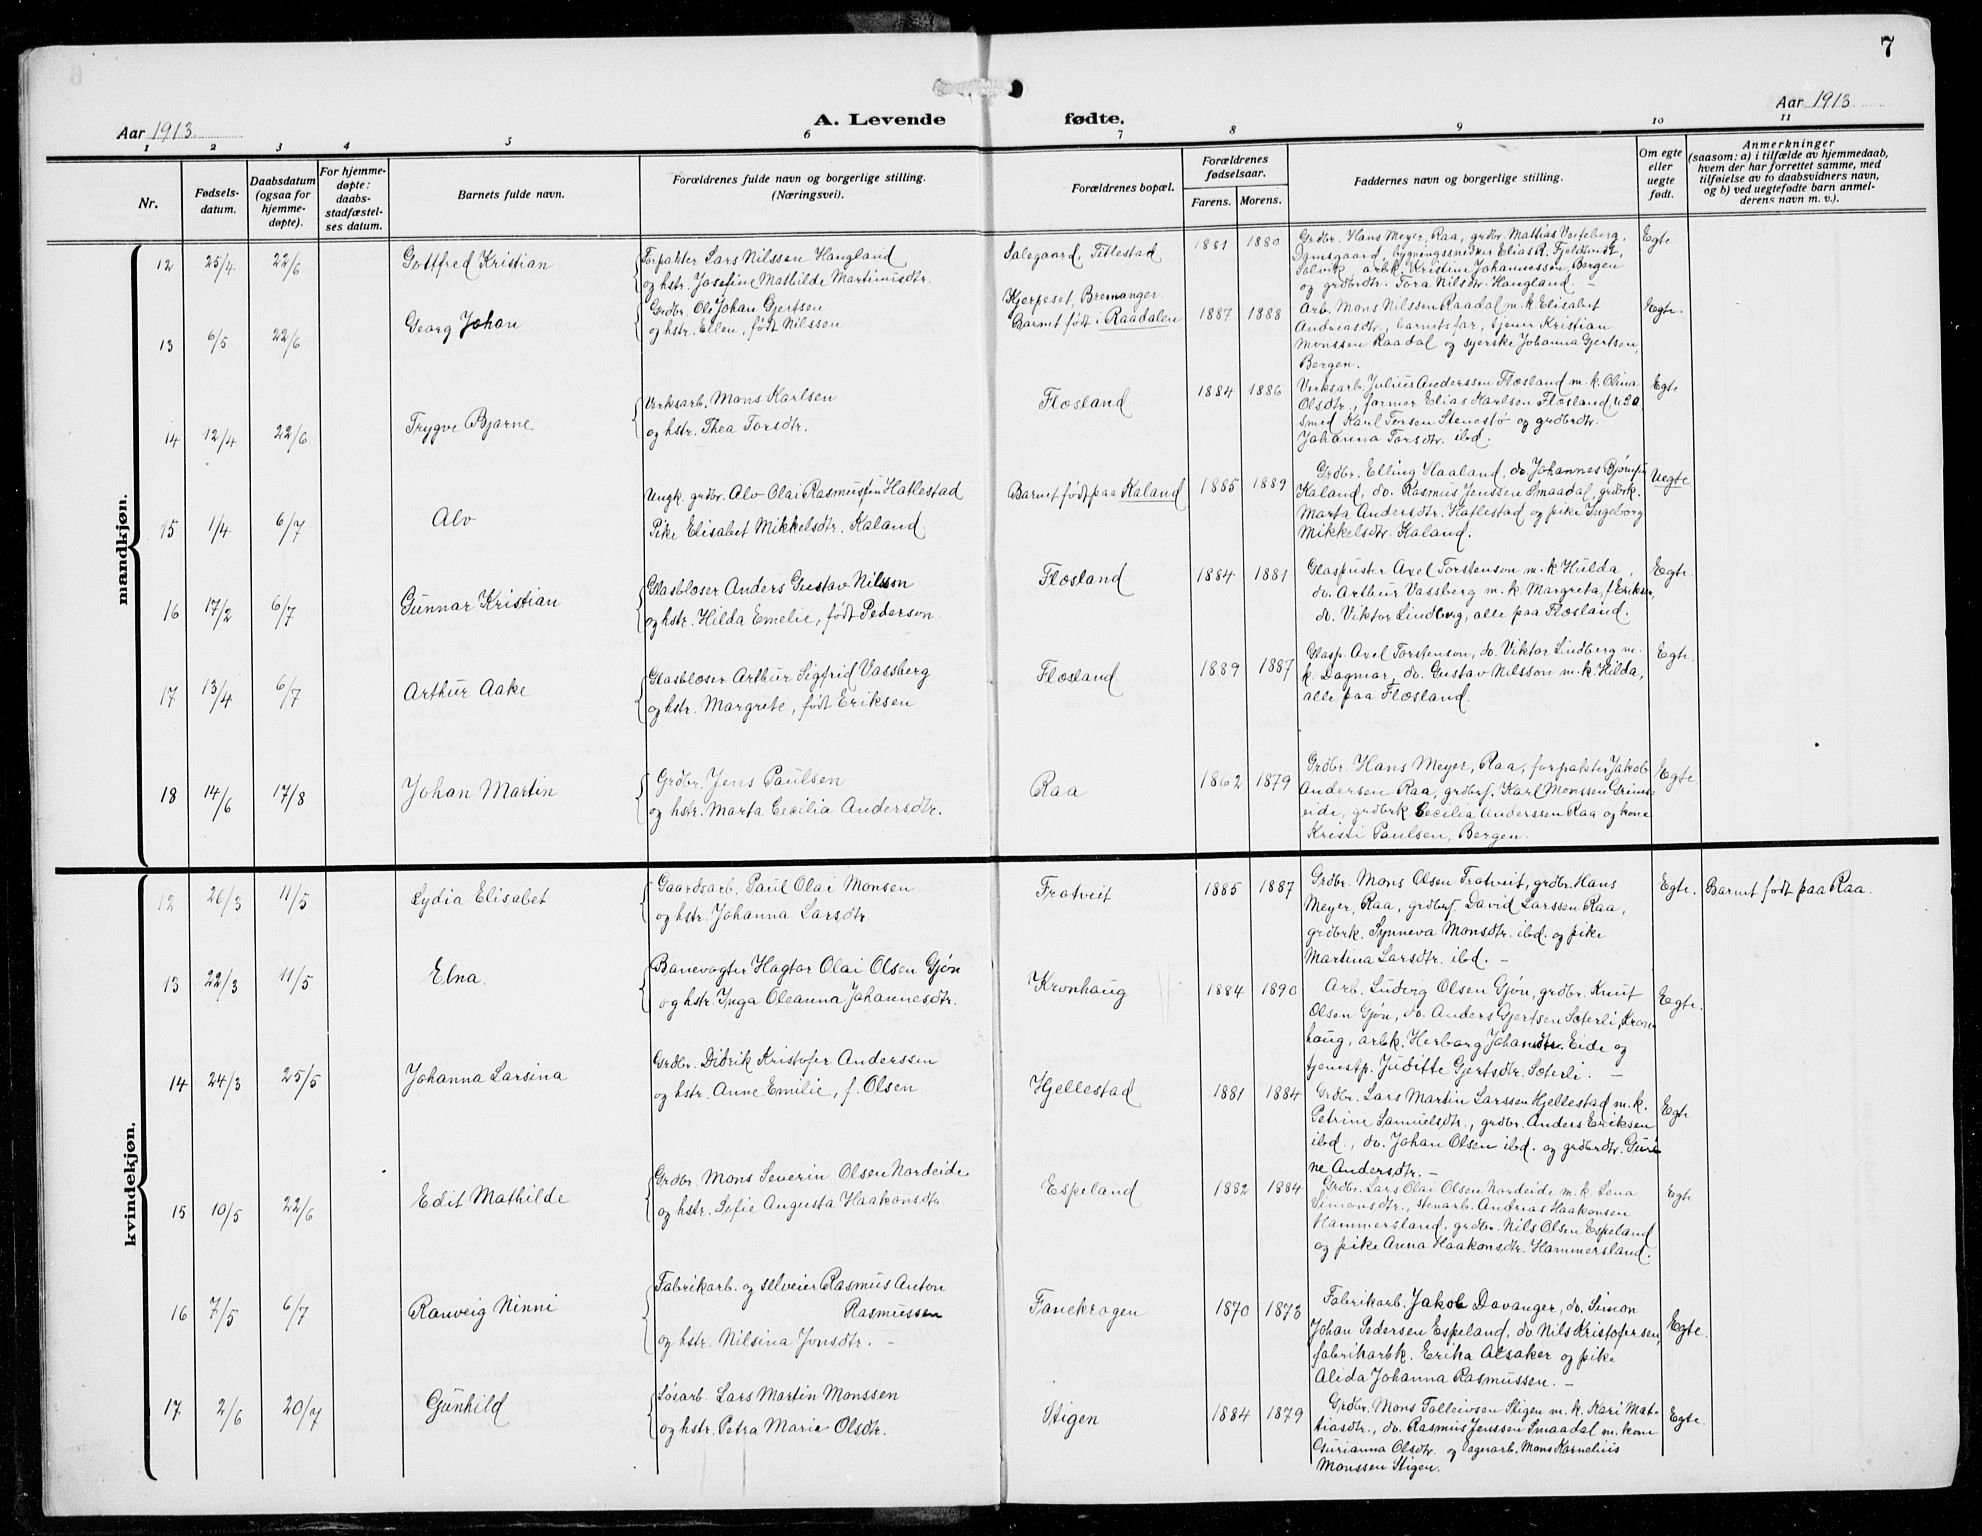 7
Aar 1913.
A. Levende fødte.
Aar 1913
1 2 3 4 5 6 7 8 9 10 11
Nr.
Fødsels-
datum.
Daabsdatum
(ogsaa for
hjemme-
døpte).
For hjemme-
døpte:
daabs-
stadfæstel-
ses datum.
Barnets fulde navn.
Forældrenes fulde navn og borgerlige stilling.
(Næringsvei).
Forældrenes bopæl.
Forældrenes
fødselsaar.
Farens. Morens.
Faddernes navn og borgerlige stilling.
Om egte
eller
uegte
født.
Anmerkninger
(saasom: a) i tilfælde av hjemmedaab,
hvem der har forrettet samme, med
tilføielse av to daabsvidners navn,
og b) ved uegtefødte barn anmel-
derens navn m. v.).
mandkjøn.
12 25/4 22/6 Gottfred Kristian
Forpakter Lars Nilssen Haugland
og hstr. Josefine Mathilde Martinusdtr.
Salegaard, Titlestad
1881 1880
Grdbr. Hans Meyer, Raa, grdbr. Mattias
Damsgaard, bygningssnedker Elias R. Fjeldtvedt,
Solvik, arbk. Kristine Johannessen, Bergen
og grdbrdtr. Tora Nilsdtr. Haugland. –
Egte
13 6/5 22/6 Georg Johan
Grdbr. Ole Johan Gjertsen
og hstr. Ellen, født Nilssen
Kjerpeset, Bremanger.
Barnet født i Raadalen
1887 1888
Arb. Mons Nilssen Raadal m. k. Elisabet
Andreasdtr., barnets far, tjener Kristian
Monssen Raadal og syerske Johanna Gjertsen,
Bergen.
Egte.
14 12/4 22/6 Trygve Bjarne
Verksarb. Mons Karlsen
og hstr. Thea Torsdtr.
Flæsland
1884 1886
Verksarb. Julius Anderssen Flæsland m. k. Olina
Olsdtr., former Elias Karlsen Flæsland
smed Karl Torsen Stenestø og grdbrdtr.
Johanna Torsdtr. ibd.
Egte
15 1/4 6/7 Alv
Ungk. grdbr. Alv Olai Rasmussen Hatlestad
Pike Elisabet Mikkelsdtr. Kaland.
Barnet født paa Kaland
1885 1889
Grdbr. Elling Haaland, do. Johannes
Kaland, do. Rasmus Jenssen Smaadal, grdbrk.
Marta Andersdtr. Hatlestad og pike Ingeborg
Mikkelsdtr. Kaland.
Uegte
16 17/2 6/7 Gunnar Kristian
Glasblæser Anders Gustav Nilsson
og hstr. Hilda Emelie, født Pederson.
Flæsland
1884 1881
Glaspuster Axel Torstenson m. k. Hulda,
do. Arthur Vassberg m. k. Margreta, f. Eriksen,
do. Viktor Lindberg, alle paa Flæsland.
Egte.
17 13/4 6/7 Arthur Aake
Glasblæser Arthur Sigfrid Vassberg
og hstr. Margrete, født Eriksen
Flæsland
1889 1887
Glasp. Axel Torstenson, do. Viktor Lindberg m.
k. Dagmar, do. Gustav Nilsson m. k. Hilda,
alle paa Flæsland.
Egte.
18 14/6 17/8 Johan Martin
Grdbr. Jens Paulsen
og hstr. Marta Cecilia Andersdtr.
Raa
1862 1879
Grdbr. Hans Meyer, Raa, forpakter Jakob
Andersen Raa, grdbrs. Karl Monssen Grims-
eide, grdbrk. Cecilia Anderssen Raa og kone
Kristi Paulsen, Bergen.
Egte
kvindekjøn.
12 26/3 11/5 Lydia Elisabet
Gaardsarb. Paul Olai Monsen
og hstr. Johanna Larsdtr.
Fratveit
1885 1887
Grdbr. Mons Olsen Tratveit, grdbr. Hans
Meyer, Raa, grdbrs. David Larssen Raa,
grdbrk. Synneva Monsdtr. ibd. og pike
Martina Larsdtr. ibd. –
Egte.
Barnet født paa Raa.
13 22/3 11/5 Elna.
Banevogter Hagtor Olai Olsen Gjøn
og hstr. Inga Oleanna Johannesdtr.
Kronhaug
1884 1890
Arb. Ludvig Olsen Gjøn, grdbr. Knut
Olsen Gjøn, do. Anders Gjertsen Sæterli, Kron-
haug, arbk. Herborg Johansdtr. Eide og
tjenestp. Juditte Gjertsdtr. Sæterli. –
Egte.
14 24/3 25/5 Johanna Larsina
Grdbr. Didrik Kristofer Anderssen
og hstr. Anne Emilie, f. Olsen
Hjellestad
1881 1884
Grdbr. Lars Martin Larssen Hjellestad m. k.
Petrine Samuelsdtr., grdbr. Anders Eriksen
ibd., do. Johan Olsen ibd. og grdbrdtr. Guri-
ne Andersdtr. –
Egte
15 10/5 22/6 Edit Mathilde
Grdbr. Mons Severin Olsen Nordeide
og hstr. Sofie Augusta Haakonsdtr
Espeland
1882 1884
Grdbr. Lars Olai Olsen Nordeide m. k. Lena
Simonsdtr., stenarb. Andreas Haakonsen
Hammersland, grdbr. Nils Olsen Espeland
og pike Anna Haakonsdtr. Hammersland.
Egte
16 7/5 6/7 Ranveig Ninni
Fabrikarb. og selveier Rasmus Anton
Rasmussen
og hstr. Nilsina Jonsdtr. –
Fanekrogen
1870 1873
Fabrikarb. Jakob Davanger, do. Simon
Johan Pedersen Espeland, do. Nils Kristofersen,
fabrikarbk. Erika Alsaker og pike
Alida Johanna Rasmussen. –
Egte.
17 2/6 20/7 Gunhild
Løsarb. Lars Martin Monssen
og hstr. Petra Marie Olsdtr.
Stigen
1884 1879
Grdbr. Mons Tolleivsen Stigen m. k. Kari Mat-
tiasdtr., do. Rasmus Jenssen Smaadal m. kone
Gurianna Olsdtr. og lagerarb. Mons Kornelius
Monssen Stigen.
Egte.